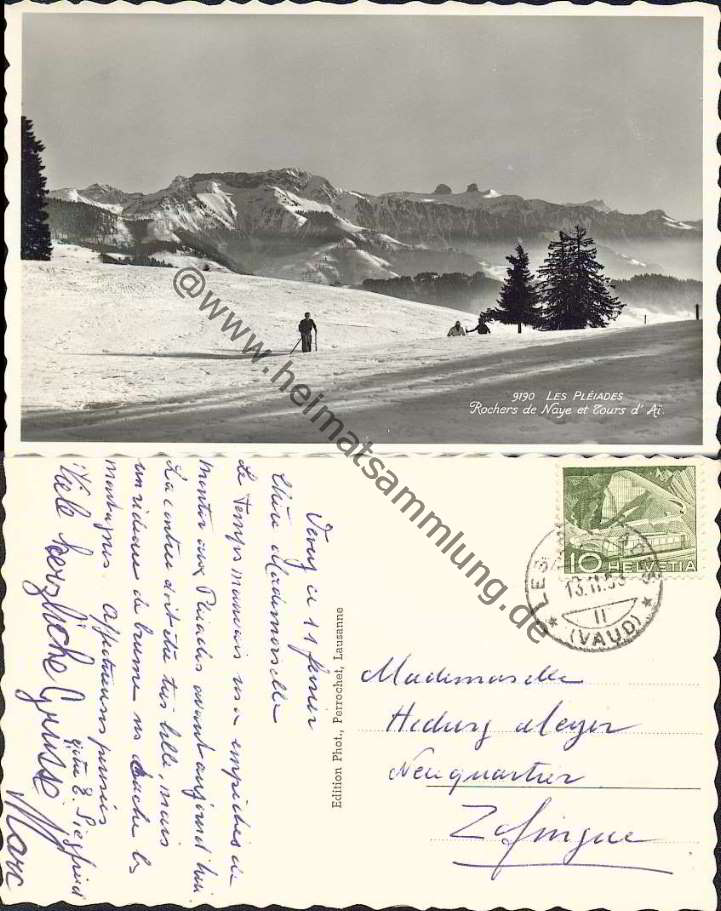 9190 LES PLÉIADES
Rochers de Naye et Tours d' Aï.
@www.heimatsammlung.de
Vevey ce 11 février
Chère Mademoiselle
Le temps mauvais m'a empêchés de
monter aux Pléiades avant aujourd'hui.
La contrée doit être très belle, mais
un rideau de brume nous cache les
montagnes. Affectueuses pensées
E. Siegfried
Viele herzliche Grüsse
Marc
Edition Phot., Perrochet, Lausanne
10 HELVETIA
LES
13.II.53
11
(VAUD)
Mademoiselle
Hedwig Meyer
Neuquartier
Zofingue